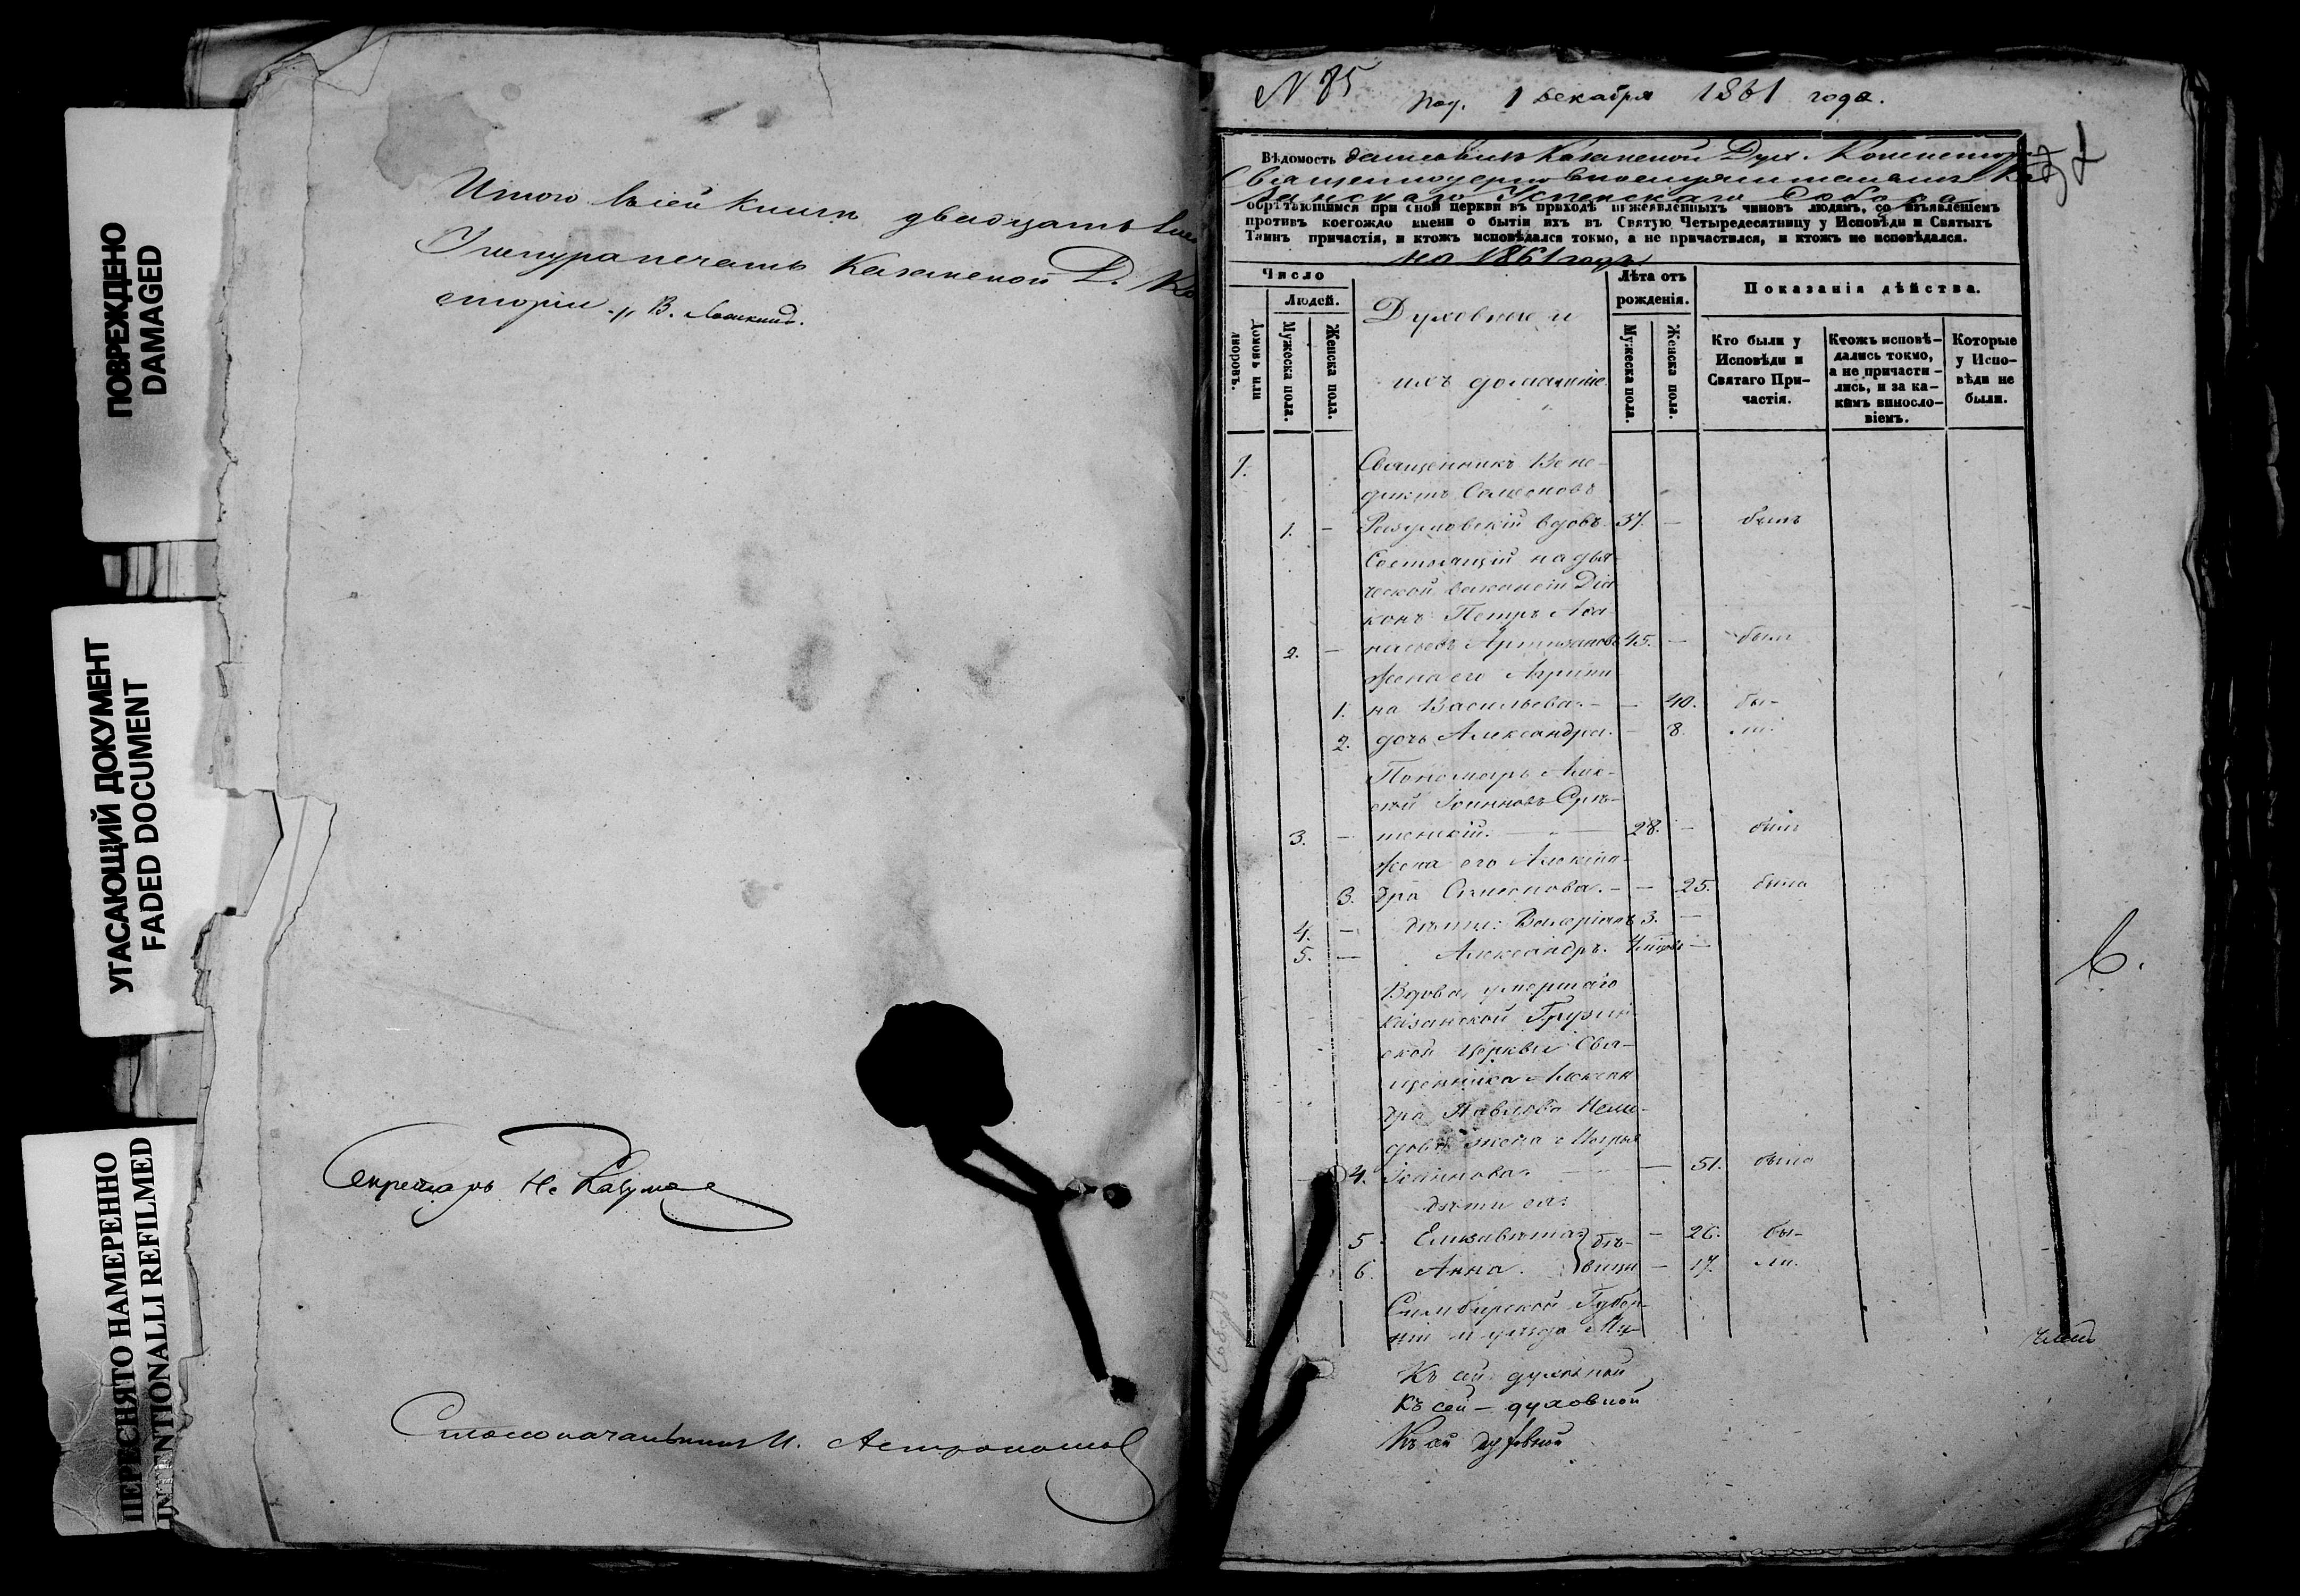 ПОВРЕЖДЕНО
DAMAGED
УГАСАЮЩИЙ ДОКУМЕНТ
FADED DOCUMENT
ПЕРЕСНЯТО НАМЕРЕННО
INTENTIONALLI REFILMED
Итого в сей книги двадцать
Казанской Д.
сторіи
Секретарь Н.
Столоначальникъ И.
N 85
Пол. 1 декабря 1861 года.
Вѣдомость Казанской Дух.
Успенскаго Собора
обрѣтающимся при оной церкви въ приходѣ нижеявленныхъ чиновъ людямъ, со изъявленіемъ
противъ коегождо имени о бытіи ихъ въ Святую Четыредесятницу у Исповѣди и Святыхъ
Таинъ причастія, и ктожъ исповѣдался токмо, а не причастился, и ктожъ не исповѣдался.
на 1861 годъ
Число
Людей.
Домовъ или дворовъ.
Мужеска пола.
Женска пола.
Духовные и
ихъ домашніе
Лѣта отъ рожденія.
Мужеска пола.
Женска пола.
Показанія дѣйства.
Кто были у Исповѣди и Святаго Причастія.
Ктожъ исповѣдались токмо, а не причастились, и за какимъ винословіемъ.
Которые у Исповѣди не были.
1. Священникъ Вене-
диктъ Симеоновъ
1. – Разумовскій вдовъ 37. – былъ
Состоящій на дья-
ческой вакансіи Діа
конъ Петръ Аѳа-
2. – насьевъ 45. – былъ
Жена его Агрипи
1. на Васильева. – – 40. бы-
2. дочь Александра. – 8. ли.
Пономарь Алек-
сѣй Іоанновъ Срѣ-
3. – тенскій. – – 28. – былъ
Жена его Алексан-
3. дра Симеонова. – – 25. была
4. – дѣти: Валеріанъ 3. –
5. – Александръ. –
Вдова, умершаго
Казанской Грузин-
ской церкви Свя-
щенника Алексан
дра Павлова
жена Марья
4. Іоаннова. – – 51. была
дѣти ея:
5. Елизавета } дѣ- – 26. бы-
6. Анна. } вицы – 17. ли.
Симбирской Губер-
ніи и уѣзда
6.
Къ сей духовной
Къ сей – духовной
Къ сей духовной